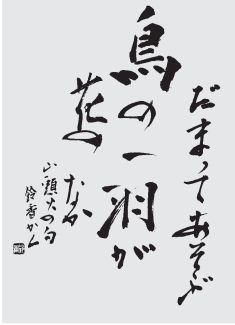 だまってあそぶ
鳥の一羽が
花の
なか
山頭火の句
鈴香かく